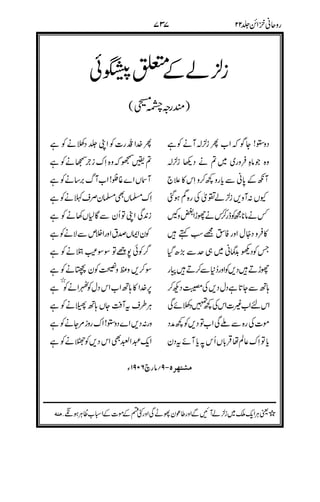 روحانی خزائن جلد۲۲
۷۳۷
زلزلے کے متعلق پیشگوئی
(مندرجہ چشمہ مسیحی)
دوستو! جاگو کہ اب پھر زلزلہ آنے کو ہے
پھر خدا قدرت کو اپنی جلد دکھلانے کو ہے
وہ جو ماہِ فروری میں تم نے دیکھا زلزلہ
تم یقیں سمجھو کہ وہ اِک زجر سمجھانے کو ہے
آنکھ کے پانی سے یارو کچھ کرو اس کا علاج
آسماں اے غافلو! اب آگ برسانے کو ہے
کیوں نہ آویں زلزلے تقویٰ کی رہ گم ہوگئی
اِک مسلماں بھی مسلماں صرف کہلانے کو ہے
کس نے مانا مجھ کو ڈر کر کس نے چھوڑا بغض وکیں
زندگی اپنی تو اُن سے گالیاں کھانے کو ہے
کافر و دجّال اور فاسق ہمیں سب کہتے ہیں
کون ایماں صدق اور اخلاص سے لانے کو ہے
جس کو دیکھو بدگمانی میں ہی حد سے بڑھ گیا
گر کوئی پوچھے تو سو سو عیب بتلانے کو ہے
چھوڑتے ہیں دیں کو اور دنیا سے کرتے ہیں پیار
سو کریں وعظ و نصیحت کون پچھتانے کو ہے
ہاتھ سے جاتا ہے دل دیں کی مصیبت دیکھ کر
پر خدا کا ہاتھ اب اس دل کو ٹھہرانے کو ہے☆
اس لئے اب غیرت اس کی کچھ تمہیں دکھلائے گی
ہر طرف یہ آفتِ جاں ہاتھ پھیلانے کو ہے
موت کی رہ سے ملے گی اب تو دیں کو کچھ مدد
ورنہ دیں اے دوستو! اک روز مر جانے کو ہے
یا تو اک عالَم تھا قرباں اُس پہ یا آئے یہ دن
ایک عبد العبد بھی اس دیں کو جھٹلانے کو ہے
مشتہرہ ۔ ۹؍مارچ ۱۹۰۶ء